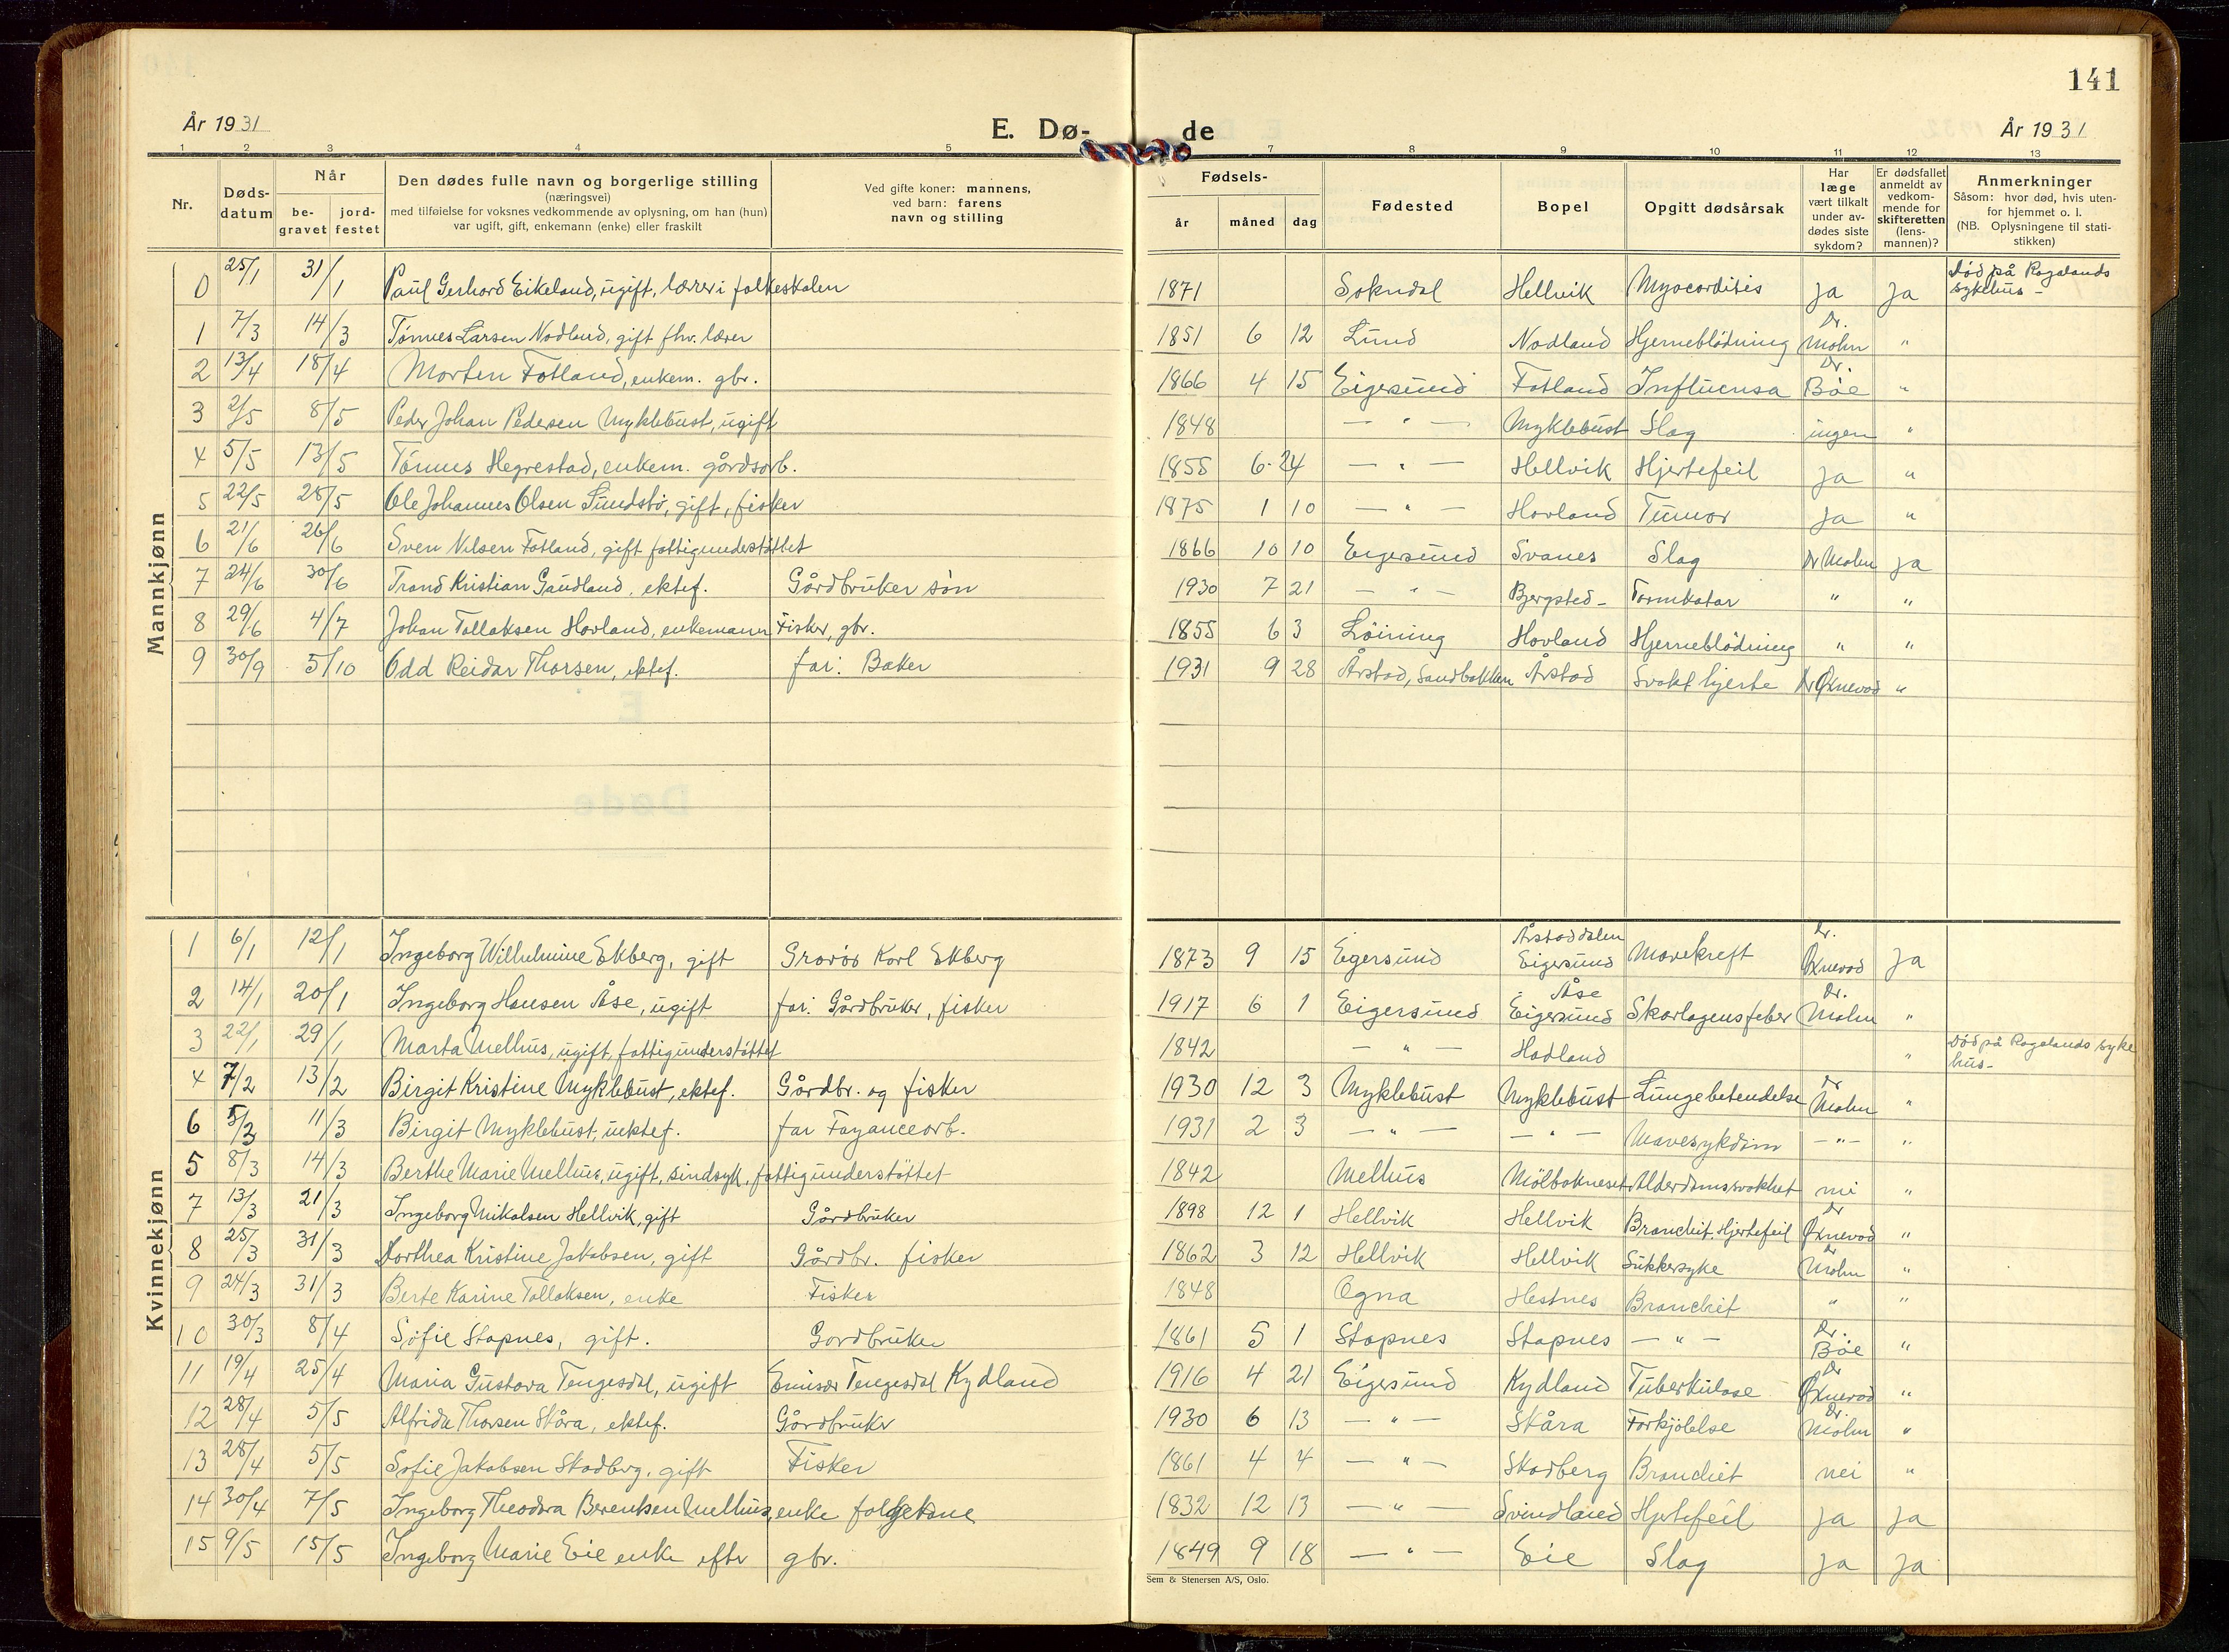 141
År 1931 E. Dø- de År 1931
1 2 3 4 5 7 8 9 10 11 12 13
Nr. Døds-datum Når be-gravet jord-festet Den dødes fulle navn og borgerlige stilling (næringsvei) med tilføielse for voksnes vedkommende av oplysning, om han (hun) var ugift, gift, enkemann (enke) eller fraskilt Ved gifte koner: mannens, ved barn: farens navn og stilling Fødsels- år måned dag Fødested Bopel Opgitt dødsårsak Har læge vært tilkalt under av-dødes siste sykdom? Er dødsfallet anmeldt av vedkom-mende for skifteretten (lens-mannen)? Anmerkninger Såsom: hvor død, hvis uten-for hjemmet o. l. (NB. Oplysningene til stati-stikken)
Mannkjønn
0 25/1 31/1 Paul Gerhard Eikeland, ugift, lærer i folkeskolen 1871 Sokndal Hellvik Myocarditis ja ja Død på Rogalands sykehus -
1 7/3 14/3 Tønnes Larsen Nodland, gift fhv. lærer 1851 6 12 Lund Nodland Hjerneblödning Dr. Mohn "
2 13/4 18/4 Morten Fotland, enkem. gbr. 1866 4 15 Eigersund Fotland Influensa Dr. Böe "
3 2/5 8/5 Peder Johan Pedersen Myklebust, ugift 1848 — " — Myklebust Slag ingen "
4 5/5 13/5 Tönnes Hegrestad, enkem. gårdsarb. 1855 6 24 — " — Hellvik Hjertefeil ja "
5 22/5 28/5 Ole Johannes Olsen Sundstö, gift, fisker 1875 1 10 — " — Hovland Tumor ja "
6 21/6 26/6 Sven Nilsen Fotland, gift fattigunderstöttet 1866 10 10 Eigersund Svanes Slag Dr Mohn ja
7 24/6 30/6 Trond Kristian Gaudland, ektef. Gårdbruker sön 1930 7 21 — " — Bjergsted - Tarmkatar " "
8 29/6 4/7 Johan Tollaksen Hovland, enkemann Fisker, gbr. 1855 6 3 Löining Hovland Hjerneblödning " "
9 30/9 5/10 Odd Reidar Thorsen, ektef. far: Baker 1931 9 28 Årstad, Sandbakken Årstad Svakt hjerte Dr Øxnevad "
Kvinnekjønn
1 6/1 12/1 Ingeborg Wilhelmine Ekberg, gift Gravör Karl Ekberg 1873 9 15 Egersund Årstaddalen Eigersund Mavekreft Dr. Øxnevad ja
2 14/1 20/1 Ingeborg Hansen Åse, ugift far: Gårdbruker, fisker 1917 6 1 Eigersund Åse Eigersund Skarlagensfeber Dr. Mohn "
3 22/1 29/1 Marta Melhus, ugift, fattigunderstöttet 1842 — " — Hadland " Död på Rogalands sykehus -
4 7/2 13/2 Birgit Kristine Myklebust, ektef. Gårdbr. og fisker 1930 12 3 Myklebust Myklebust Lungebetendelse Dr Mohn "
6 5/3 11/3 Birgit Myklebust, uektef. far Fayancearb. 1931 2 3 — " — — " — Mavesykdom — " — "
5 8/3 14/3 Berthe Marie Melhus, ugift, sindsyk, fattigunderstöttet 1842 Melhus Mölbakneset Alderdomssvakhet nei "
7 13/3 21/3 Ingeborg Mikalsen Hellvik, gift Gårdbruker 1898 12 1 Hellvik Hellvik Bronchit. Hjertefeil Dr Øxnevad "
8 25/3 31/3 Dorthea Kristine Jakobsen, gift Gårdbr. fisker 1862 3 12 Hellvik Hellvik Sukkersyke Dr Mohn "
9 24/3 31/3 Berte Karine Tollaksen, enke Fisker 1848 Ogna Hestnes Bronchit " "
10 30/3 8/4 Sofie Stapnes, gift. Gårdbruker 1861 5 1 Stapnes Stapnes — " — Dr. Böe "
11 19/4 25/4 Maria Gustava Tengesdal, ugift Emisær Tengesdal Kydland 1916 4 21 Eigersund Kydland Tuberkulose Dr Øxnevad "
12 28/4 5/5 Alfrida Thorsen Skåra, ektef. Gårdbruker 1930 6 13 — " — Skåra Forkjölelse Dr. Mohn "
13 28/4 5/5 Sofie Jakobsen Skadberg, gift Fisker 1861 4 4 — " — Skadberg Bronchit nei "
14 30/4 7/5 Ingeborg Theodora Berentsen Melhus, enke folgekone 1832 12 13 — " — Svindland Hjertefeil ja ja
15 9/5 15/5 Ingeborg Marie Eie enke efter gbr. 1849 9 18 — " — Eie Slag ja ja
Sem & Stenersen A/S, Oslo.